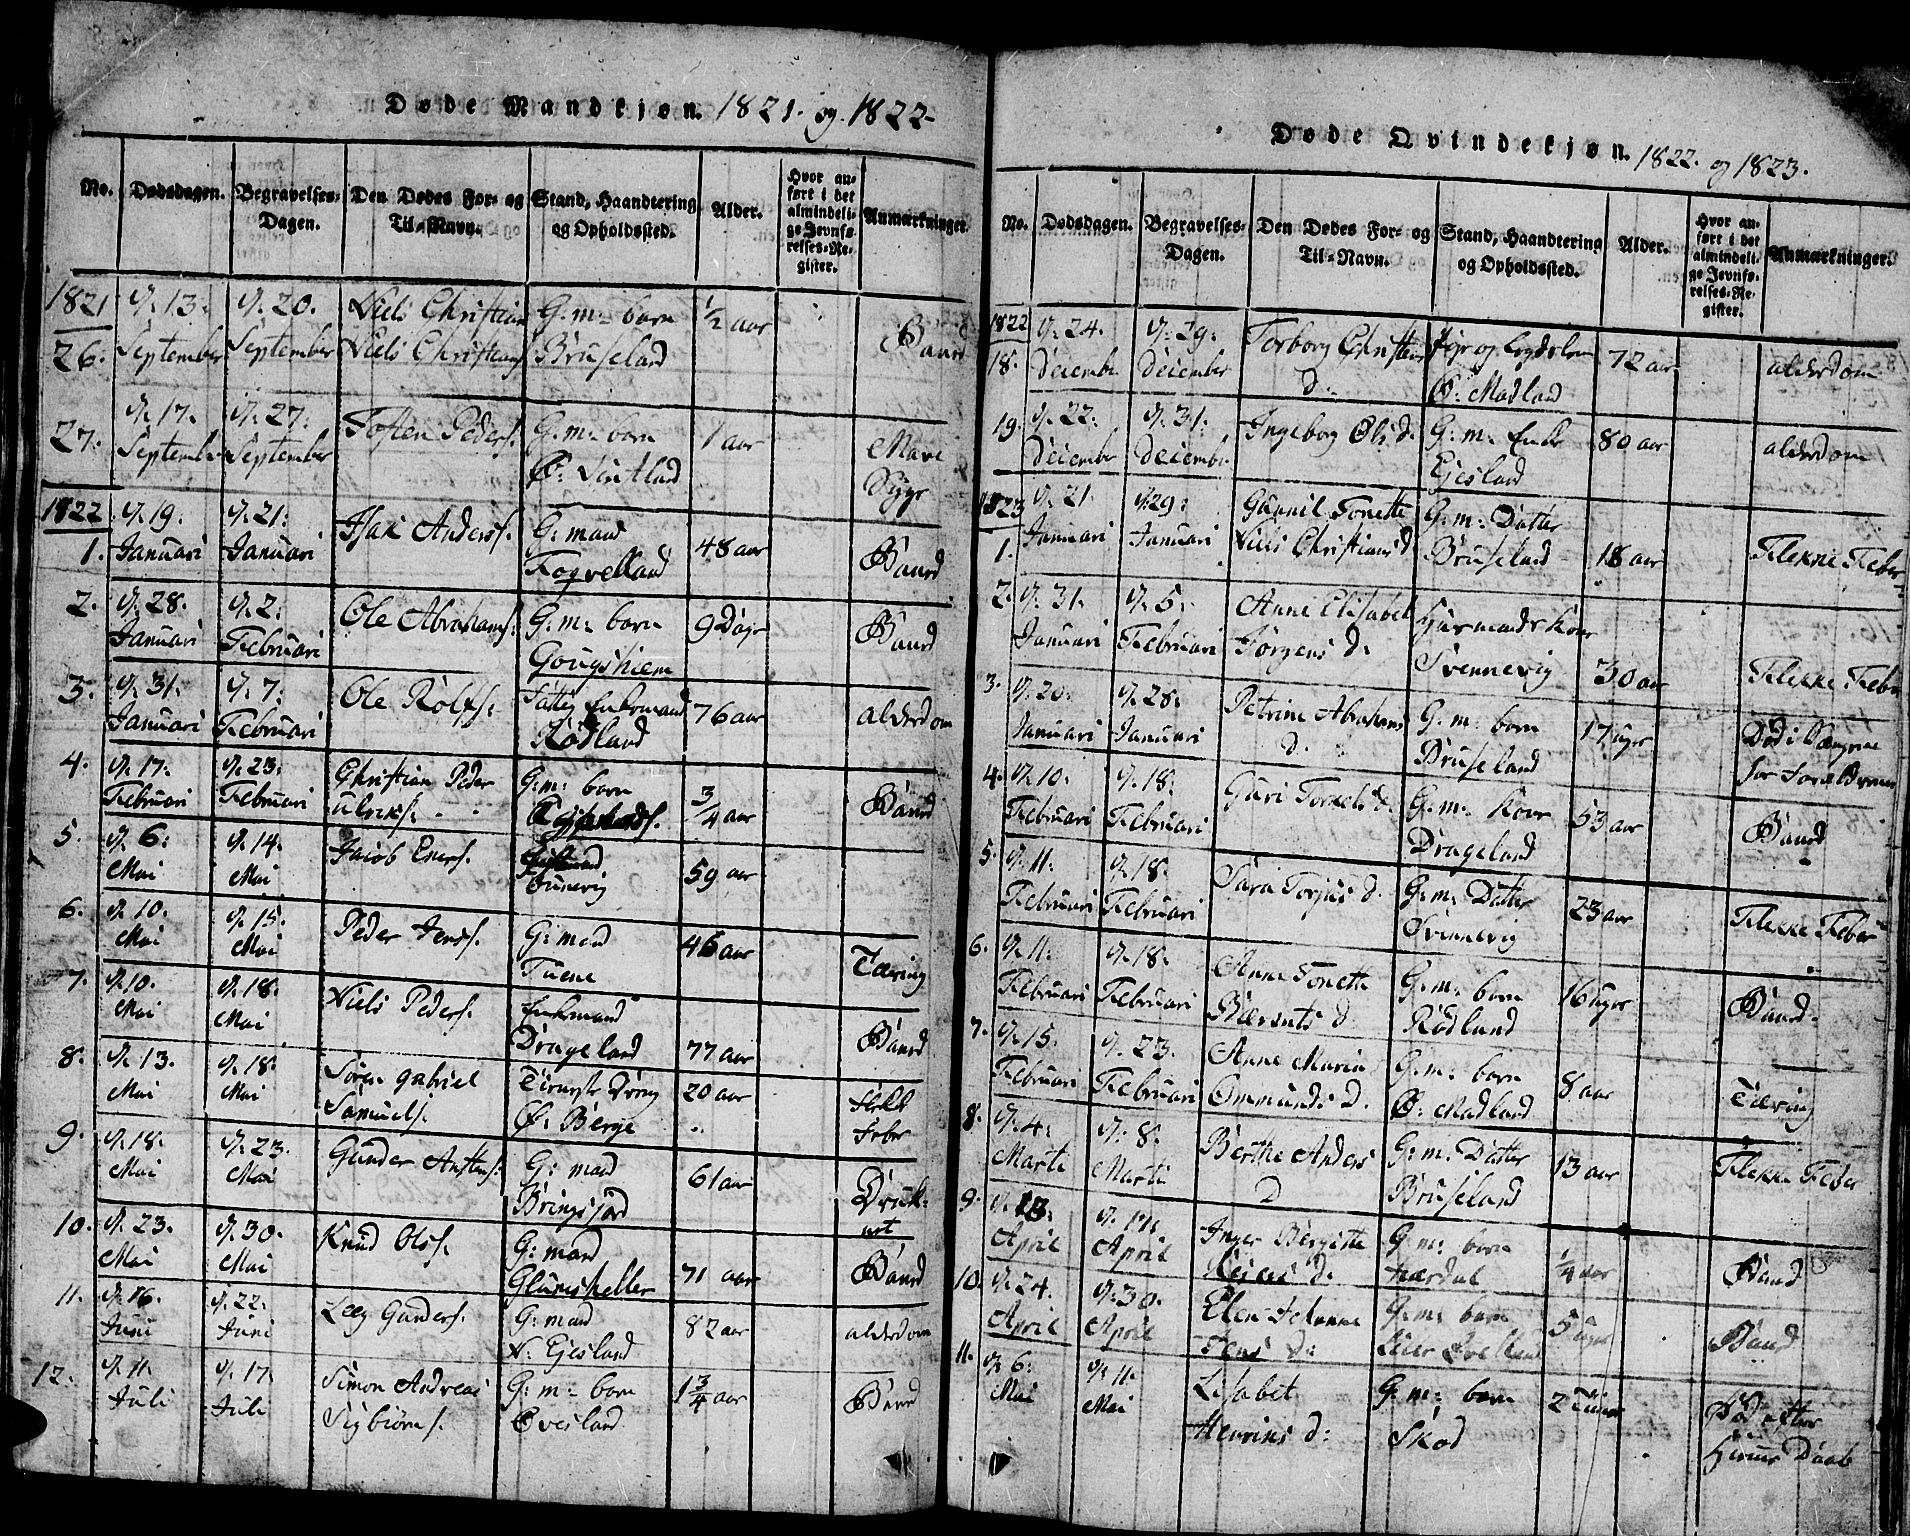 Døde Mandkjøn. 1821. og. 1822-
No.
Dødsdagen.
Begravelses-
Dagen.
Den Dødes For- og
Til-Navn.
Stand, Haandtering
og Opholdssted.
Alder.
Hvor an-
ført i det
almindeli-
ge Jevnfø-
relses-Re-
gister.
Anmærkninger.
1821
26.
d. 13.
September
d. 20.
September
Niels Christian
Niels Christians
G: m: barn
Bruseland
1/2 aar
Baand
27:
d. 17.
September
d. 27:
September
Tosten Peders.
G: m: barn
Ø:
1 aar
Mave
Syge
1822
1.
d. 19.
Januari
d. 21:
Januari
Isak Anders.
G: mand
Fogvelland
48 aar
Baand
2.
d. 28.
Januari
d. 2:
Februari
Ole Abrahams.
G: m: barn
Gougshiem
9 Dage
Baand
3.
d. 31.
Januari
d. 7:
Februari
Ole Rolfs.
Fattig Enkemand
Rødland
76 aar
alderdom
4.
d. 17:
Februari
d. 23:
Februari
Christian Peder
Ulriks.
G: m: barn
3/4 aar
Baand
5.
d. 6:
Mai
d. 14.
Mai
Jacob Eners.
59 aar
6.
d. 10.
Mai
d. 15:
Mai
Peder Jens.
G: mand
Tuene
46 aar
Tæring
7.
d. 10.
Mai
d. 18.
Mai
Niels Peders.
Enkemand
Drageland
77 aar
Baand
8.
d. 13.
Mai
d. 18.
Mai
Søren Gabriel
Samuels.
Tieneste Dreng
Ø: Berge
20 aar
Flekke
Feber
9.
d. 18.
Mai
d. 23.
Mai
Gunder Anstens.
G: mand
Bringsjord
61 aar
Druk-
net
10.
d. 23.
Mai
d. 30.
Mai
Knud Ols.
G: mand
Glumsheller
71 aar
Baand
11.
d. 16.
Juni
d. 22:
Juni
Leeg Gunders.
G: mand
N: Ejesland
82 aar
alderdom
12.
d. 11.
Juli
d. 17.
Juli
Simon Andreas
Sigbiørns.
G: m: barn
Øvesland
1 3/4 aar
Baand
Døde Qvindekjøn. 1822. og 1823.
No.
Dødsdagen.
Begravelses-
Dagen.
Den Dødes For- og
Til-Navn.
Stand, Haandtering
og Opholdssted.
Alder.
Hvor an-
ført i det
almindeli-
ge Jevnfø-
relses-Re-
gister.
Anmærkninger.
1822
18.
d. 24.
December
d. 29.
December
Torborg Christens
D.
Pige og Legdslem
Ø: Madland
72 aar
alderdom
19.
d. 22.
December
d. 31.
December
Ingeborg Ols d.
G: m: Enke
Ejesland
80 aar
alderdom
1823
1.
d. 21.
Januari
d. 29:
Januari
Gunnil Tonette
Niels Christians d
G: m: Datter
Bruseland
18 aar
Flekke Feber
2.
d. 31.
Januari
d. 5:
Februari
Anne Elisabet
Jørgens d.
Huusmands Kone
Svennevig
30 aar
Flekke Feber
3.
d. 20.
Januari
d. 28.
Januari
Petrine Abrahams
D.
G: m: barn
Bruseland
17 uger
Død i Sængene
4.
d. 10.
Februari
d. 18.
Februari
Guri Torkels d.
G. m: Kone
Drageland
53 aar
Baand
5.
d. 11.
Februari
d. 18.
Februari
Sara Torjus d.
G: m: Datter
Svennevig
23 aar
Flekke Feber
6.
d. 11.
Februari
d. 18.
Februari
Anne Tonette
Bærents d
G: m: barn
Rødland
16 uger
Baand.
7.
d. 15.
Februari
d. 23.
Februari
Anne Maria
Ommunds d.
G: m: barn
Ø: Madland
8 aar
Tæring
8.
d. 4:
Marti
d. 8.
Marti
Berthe Anders
D
G: m: Datter
Bruseland
13 aar
Flekke Feber
9.
d. 13:
April
d. 17:
April
Inger Bergitte
G. m: barn
Hærdal
1/4 aar
Baand
10.
d. 24.
April
d. 30.
April
Elen Johanne
Jens D:
G: m: barn
5 uger
Baand
11.
d. 6:
Mai
d. 11.
Mai
Lisabet
Henriks d:
G: m: barn
Skod
2 Timer
Død efter
hjeme Daab